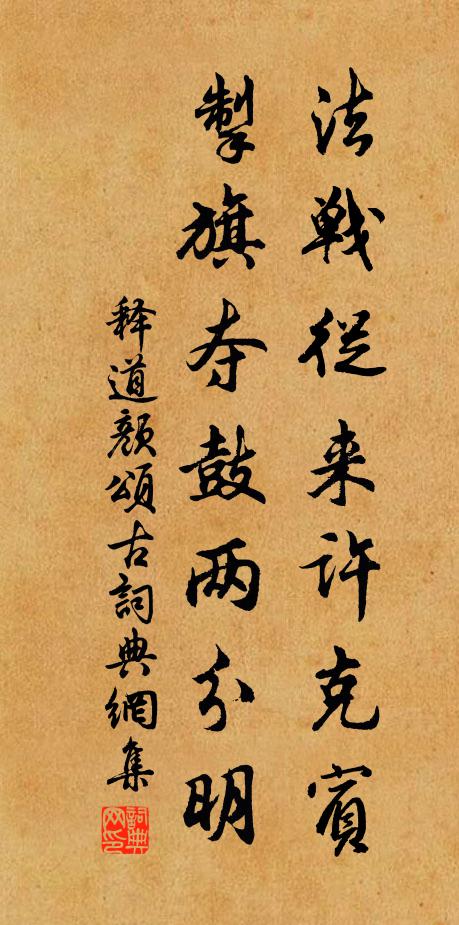 法戰從来许克賓
掣旗夺鼓两分明
释道颜頌古詞典網集
詞典网印